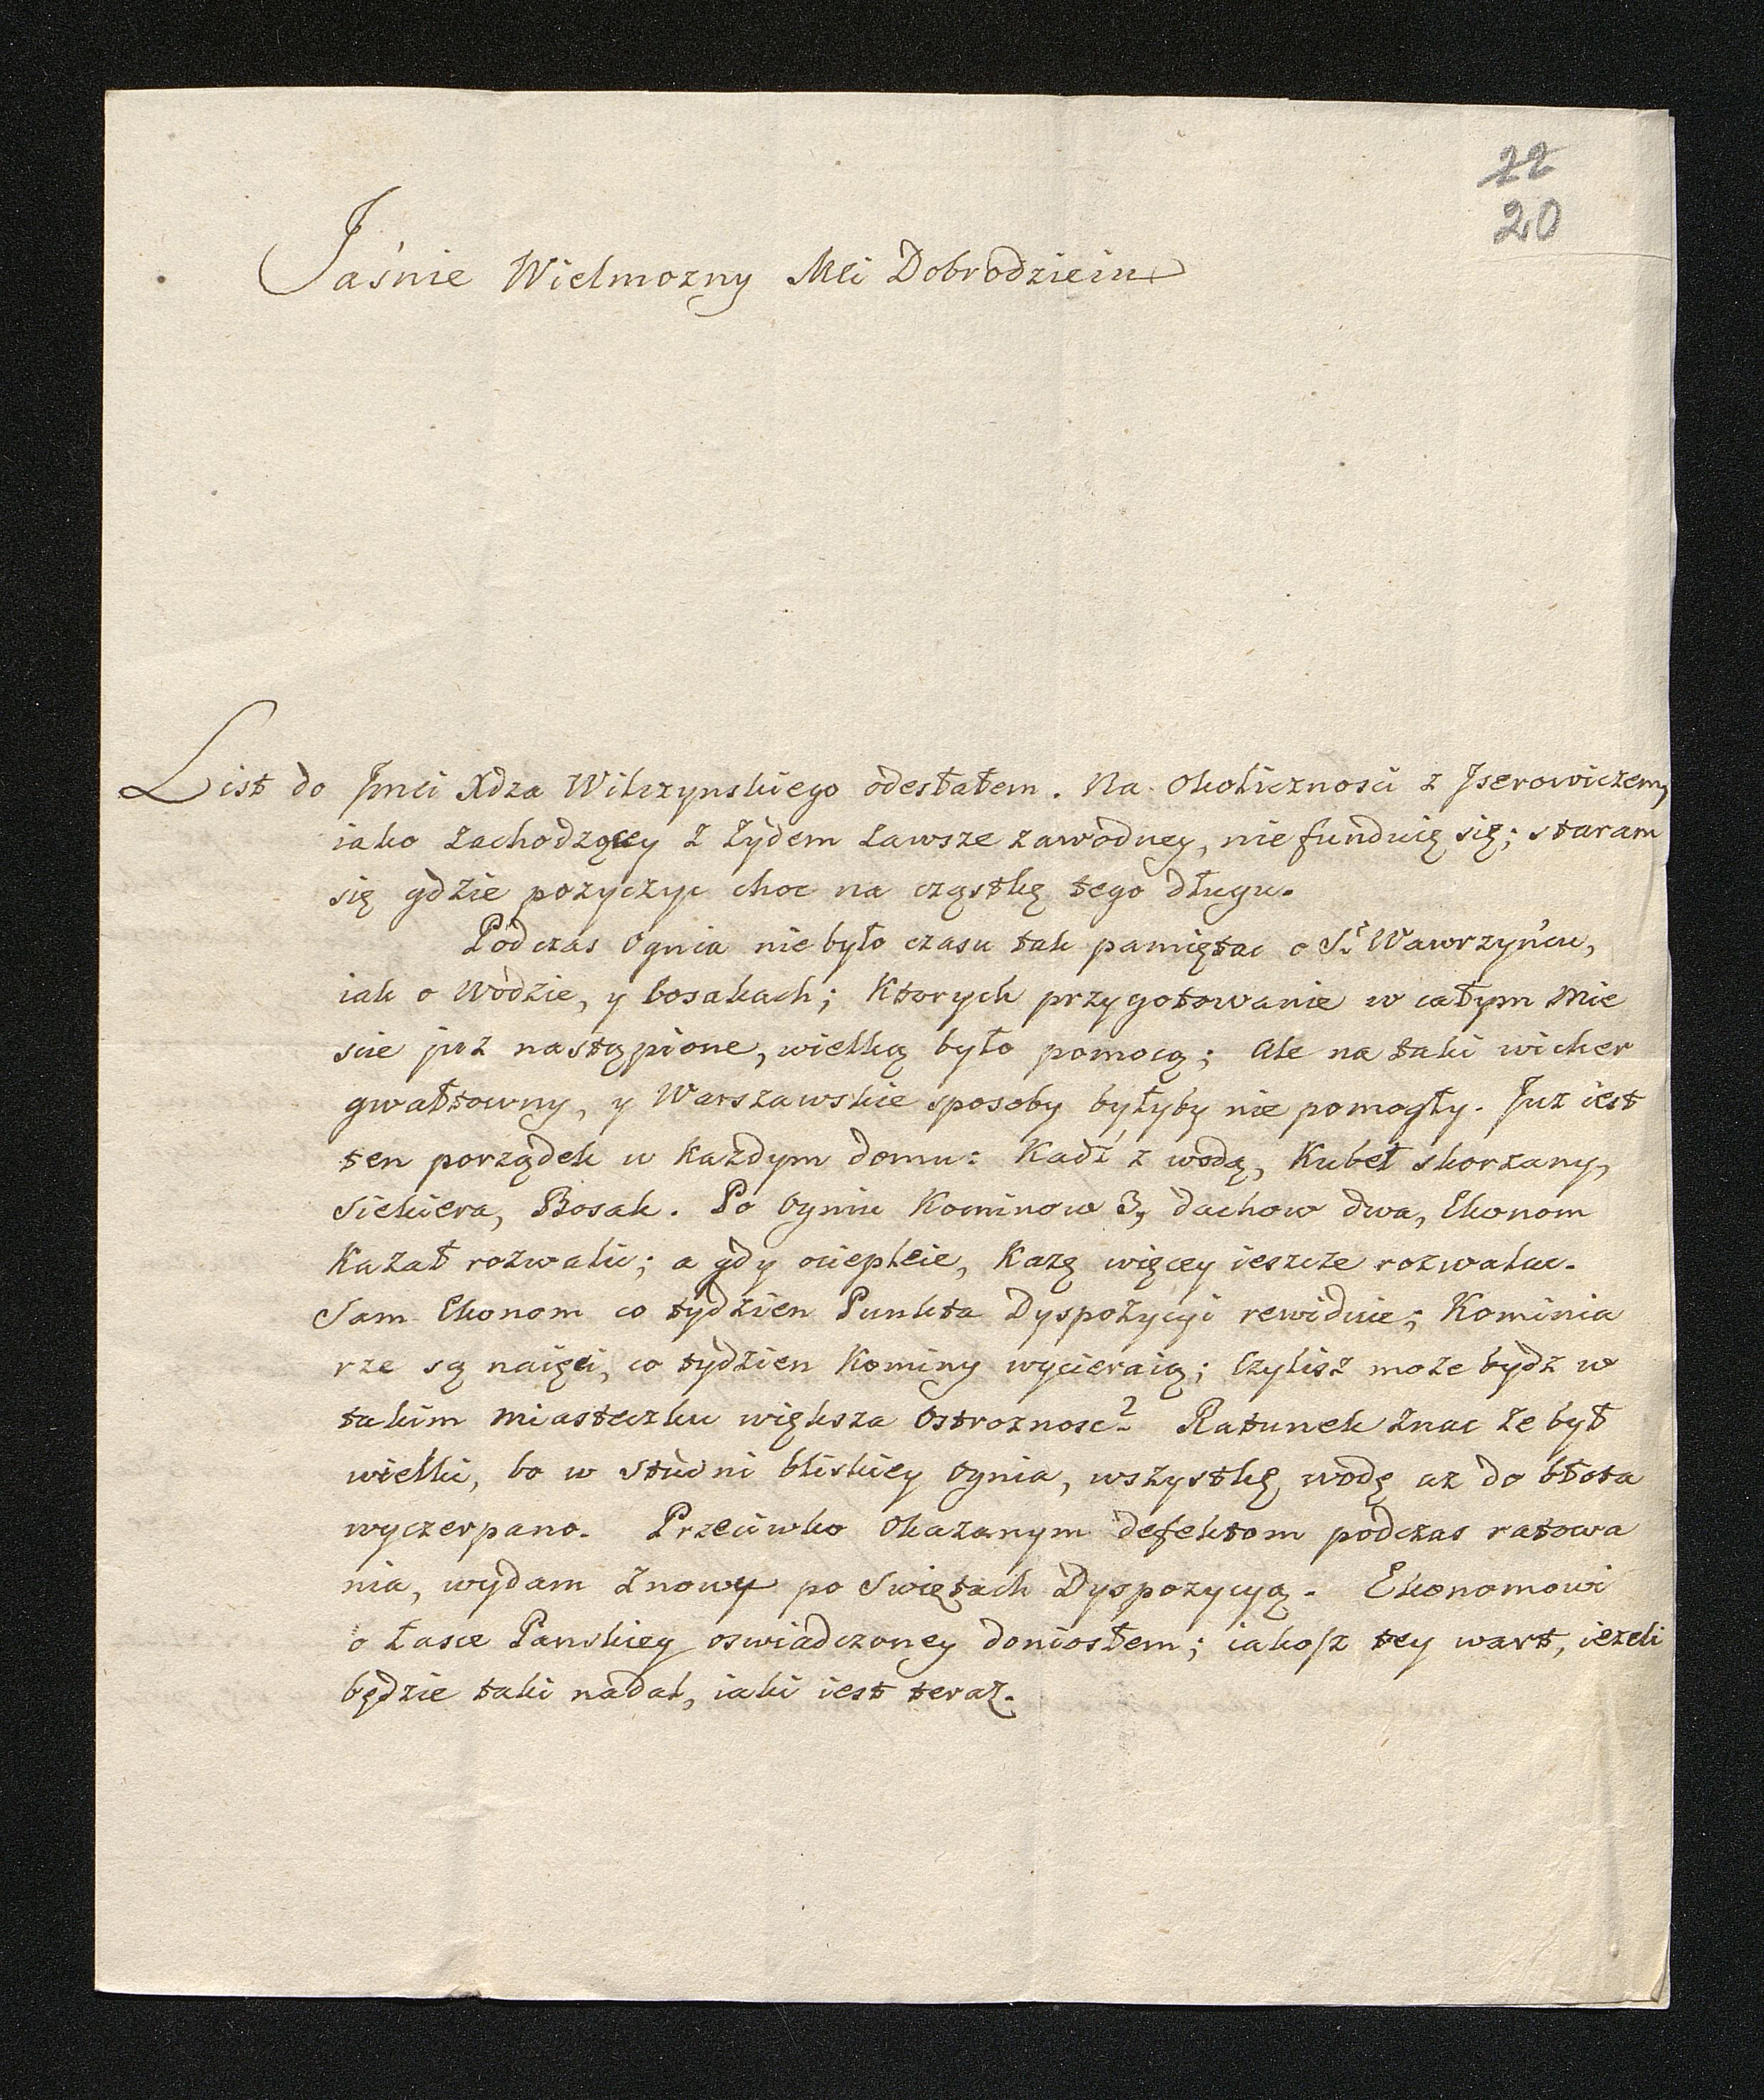 22
20
Jaśnie Wielmozny Mci Dobrodzieiu
List do Jmci Xdza Wilczynskiego odesłałem. Na okolicznosci z Jserowiczem,
iako zachodzącey z Zydem zawsze zawodney, nie funduię się; staram
się gdzie pozyczyc choc na cząstkę tego długu.
Podczas Ognia nie było czasu tak pamiętac o S. Wawrzyńcu,
iak o Wodzie, y bosakach; Ktorych przygotowanie w całym Mie
scie juz nastąpione, wielką było pomocą; Ale na taki wicher
gwałtowny, y Warszawskie sposoby byłyby nie pomogły. Juz iest
ten porządek w Kazdym domu: Kadź z wodą, Kubeł skorzany,
Siekiera, Bosak. Po Ogniu Kominow 3, dachow dwa, Ekonom
Kazał rozwalic; a gdy ociepleie, Kazę więcey ieszcze rozwalac.
Sam Ekonom co tydzien Punkta Dyspozycyi rewiduie; Kominia
rze są naięci, co tydzien Kominy wycieraią; Czylisz moze bydz w
takim Miasteczku większa Ostroznosc? Ratunek znac ze był
wielki, bo w studni bliskiey Ognia, wszystkę wodę az do błota
wyczerpano. Przeciwko Okazanym defektom podczas ratowa
nia, wydam znowy po Swiętach Dyspozycyą. Ekonomowi
o Łasce Panskiey oswiadczoney doniosłem; iakosz tey wart, iezeli
będzie taki nadal, iaki iest teraz.